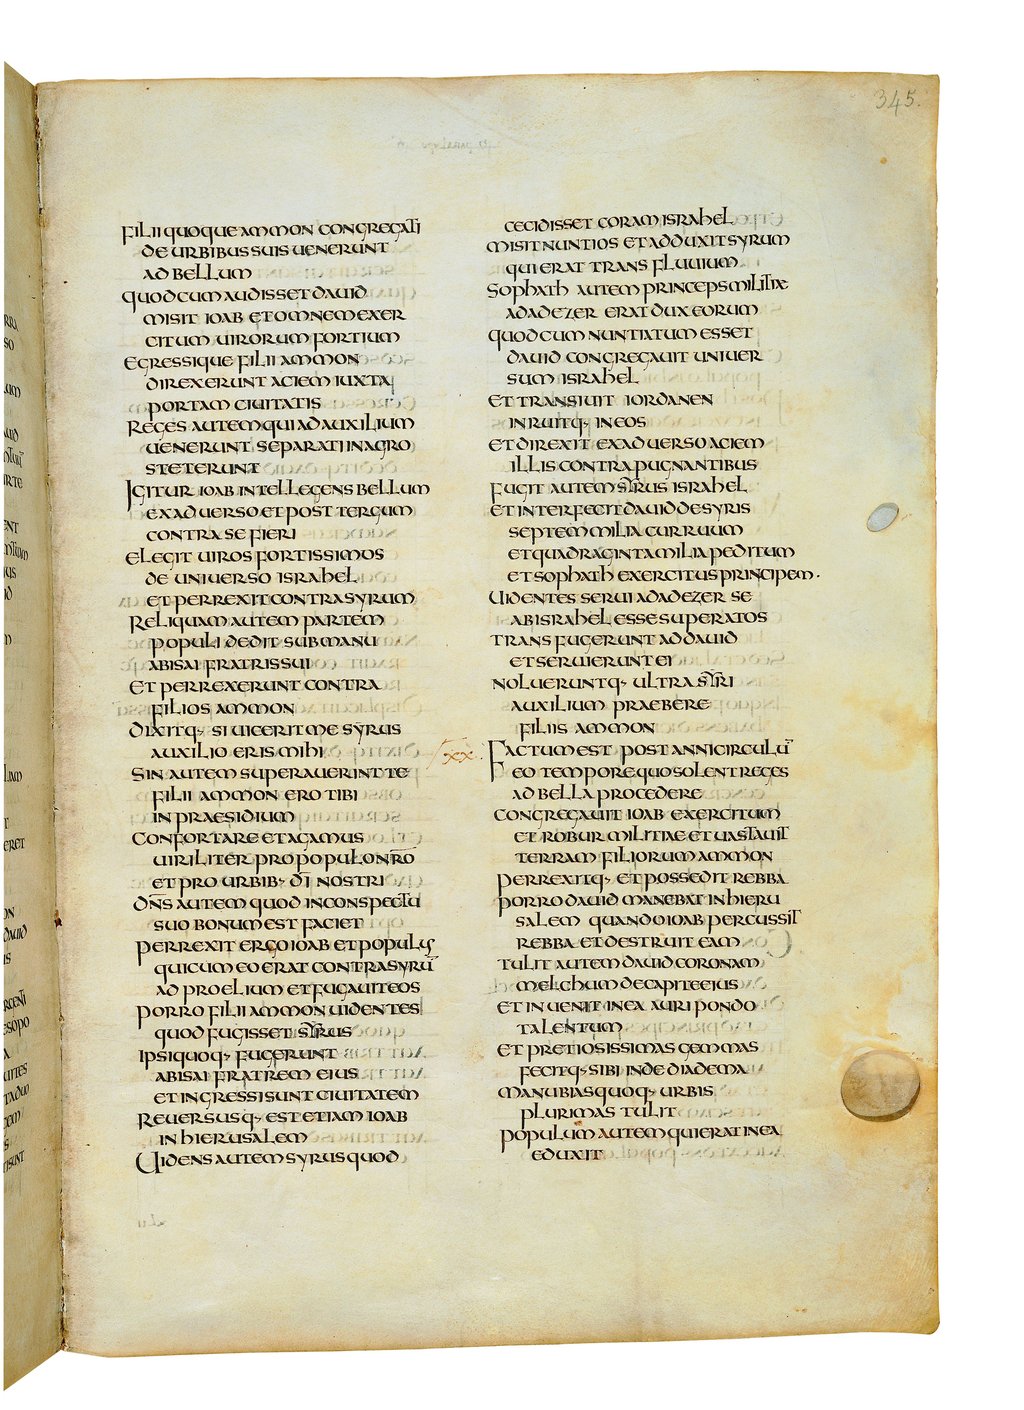 345.
FILII QUOQUE AMMON CONGREGATI
DE URBIBUS SUIS UENERUNT
AD BELLUM
QUOD CUM AUDISSET DAUID
MISIT IOAB ET OMNEM EXER
CITUM UIRORUM FORTIUM
EGRESSIQUE FILII AMMON
DIREXERUNT ACIEM IUXTA
PORTAM CIUITATIS
REGES AUTEM QUI AD AUXILIUM
UENERUNT SEPARATI IN AGRO
STETERUNT
IGITUR IOAB INTELLEGENS BELLUM
EX ADUERSO ET POST TERGUM
CONTRA SE FIERI
ELEGIT UIROS FORTISSIMOS
DE UNIUERSO ISRAHEL
ET PERREXIT CONTRA SYRUM
RELIQUAM AUTEM PARTEM
POPULI DEDIT SUB MANU
ABISAI FRATRIS SUI
ET PERREXERUNT CONTRA
FILIOS AMMON
DIXITQ· SI UICERIT ME SYRUS
AUXILIO ERIS MIHI
SIN AUTEM SUPERAUERINT TE
FILII AMMON ERO TIBI
IN PRAESIDIUM
CONFORTARE ET AGAMUS
UIRILITER PRO POPULO NR̄O
ET PRO URBIB· DĪ NOSTRI
DN̄S AUTEM QUOD IN CONSPECTU
SUO BONUM EST FACIET
PERREXIT ERGO IOAB ET POPULUS
QUI CUM EO ERAT CONTRA SYRŪ
AD PROELIUM ET FUGAUIT EOS
PORRO FILII AMMON UIDENTES
QUOD FUGISSET SYRUS
IPSI QUOQ· FUGERUNT
ABISAI FRATREM EIUS
ET INGRESSI SUNT CIUITATEM
REUERSUSQ· EST ETIAM IOAB
IN HIERUSALEM
UIDENS AUTEM SYRUS QUOD
CECIDISSET CORAM ISRAHEL
MISIT NUNTIOS ET ADDUXIT SYRUM
QUI ERAT TRANS FLUUIUM
SOPHATH AUTEM PRINCEPS MILITIAE
ADADEZER ERAT DUX EORUM
QUOD CUM NUNTIATUM ESSET
DAUID CONGREGAUIT UNIUER
SUM ISRAHEL
ET TRANSIUIT IORDANEN
INRUITQ· IN EOS
ET DIREXIT EX ADUERSO ACIEM
ILLIS CONTRA PUGNANTIBUS
FUGIT AUTEM SYRUS ISRAHEL
ET INTERFECIT DAUID DE SYRIS
SEPTEM MILIA CURRUUM
ET QUADRAGINTA MILIA PEDITUM
ET SOPHATH EXERCITUS PRINCIPEM·
UIDENTES SERUI ADADEZER SE
AB ISRAHEL ESSE SUPERATOS
TRANSFUGERUNT AD DAUID
ET SERUIERUNT EI
NOLUERUNTQ· ULTRA SYRI
AUXILIUM PRAEBERE
FILIIS AMMON
XX· FACTUM EST POST ANNI CIRCULŪ
EO TEMPORE QUO SOLENT REGES
AD BELLA PROCEDERE
CONGREGAUIT IOAB EXERCITUM
ET ROBUR MILITIAE ET UASTAUIT
TERRAM FILIORUM AMMON
PERREXITQ· ET POSSEDIT REBBA
PORRO DAUID MANEBAT IN HIERU
SALEM QUANDO IOAB PERCUSSIT
REBBA ET DESTRUIT EAM
TULIT AUTEM DAUID CORONAM
MELCHUM DE CAPITE EIUS
ET INUENIT IN EA AURI PONDO
TALENTUM
ET PRETIOSISSIMAS GEMMAS
FECITQ· SIBI INDE DIADEMA
MANUBIAS QUOQ· URBIS
PLURIMAS TULIT
POPULUM AUTEM QUI ERAT IN EA
EDUXIT